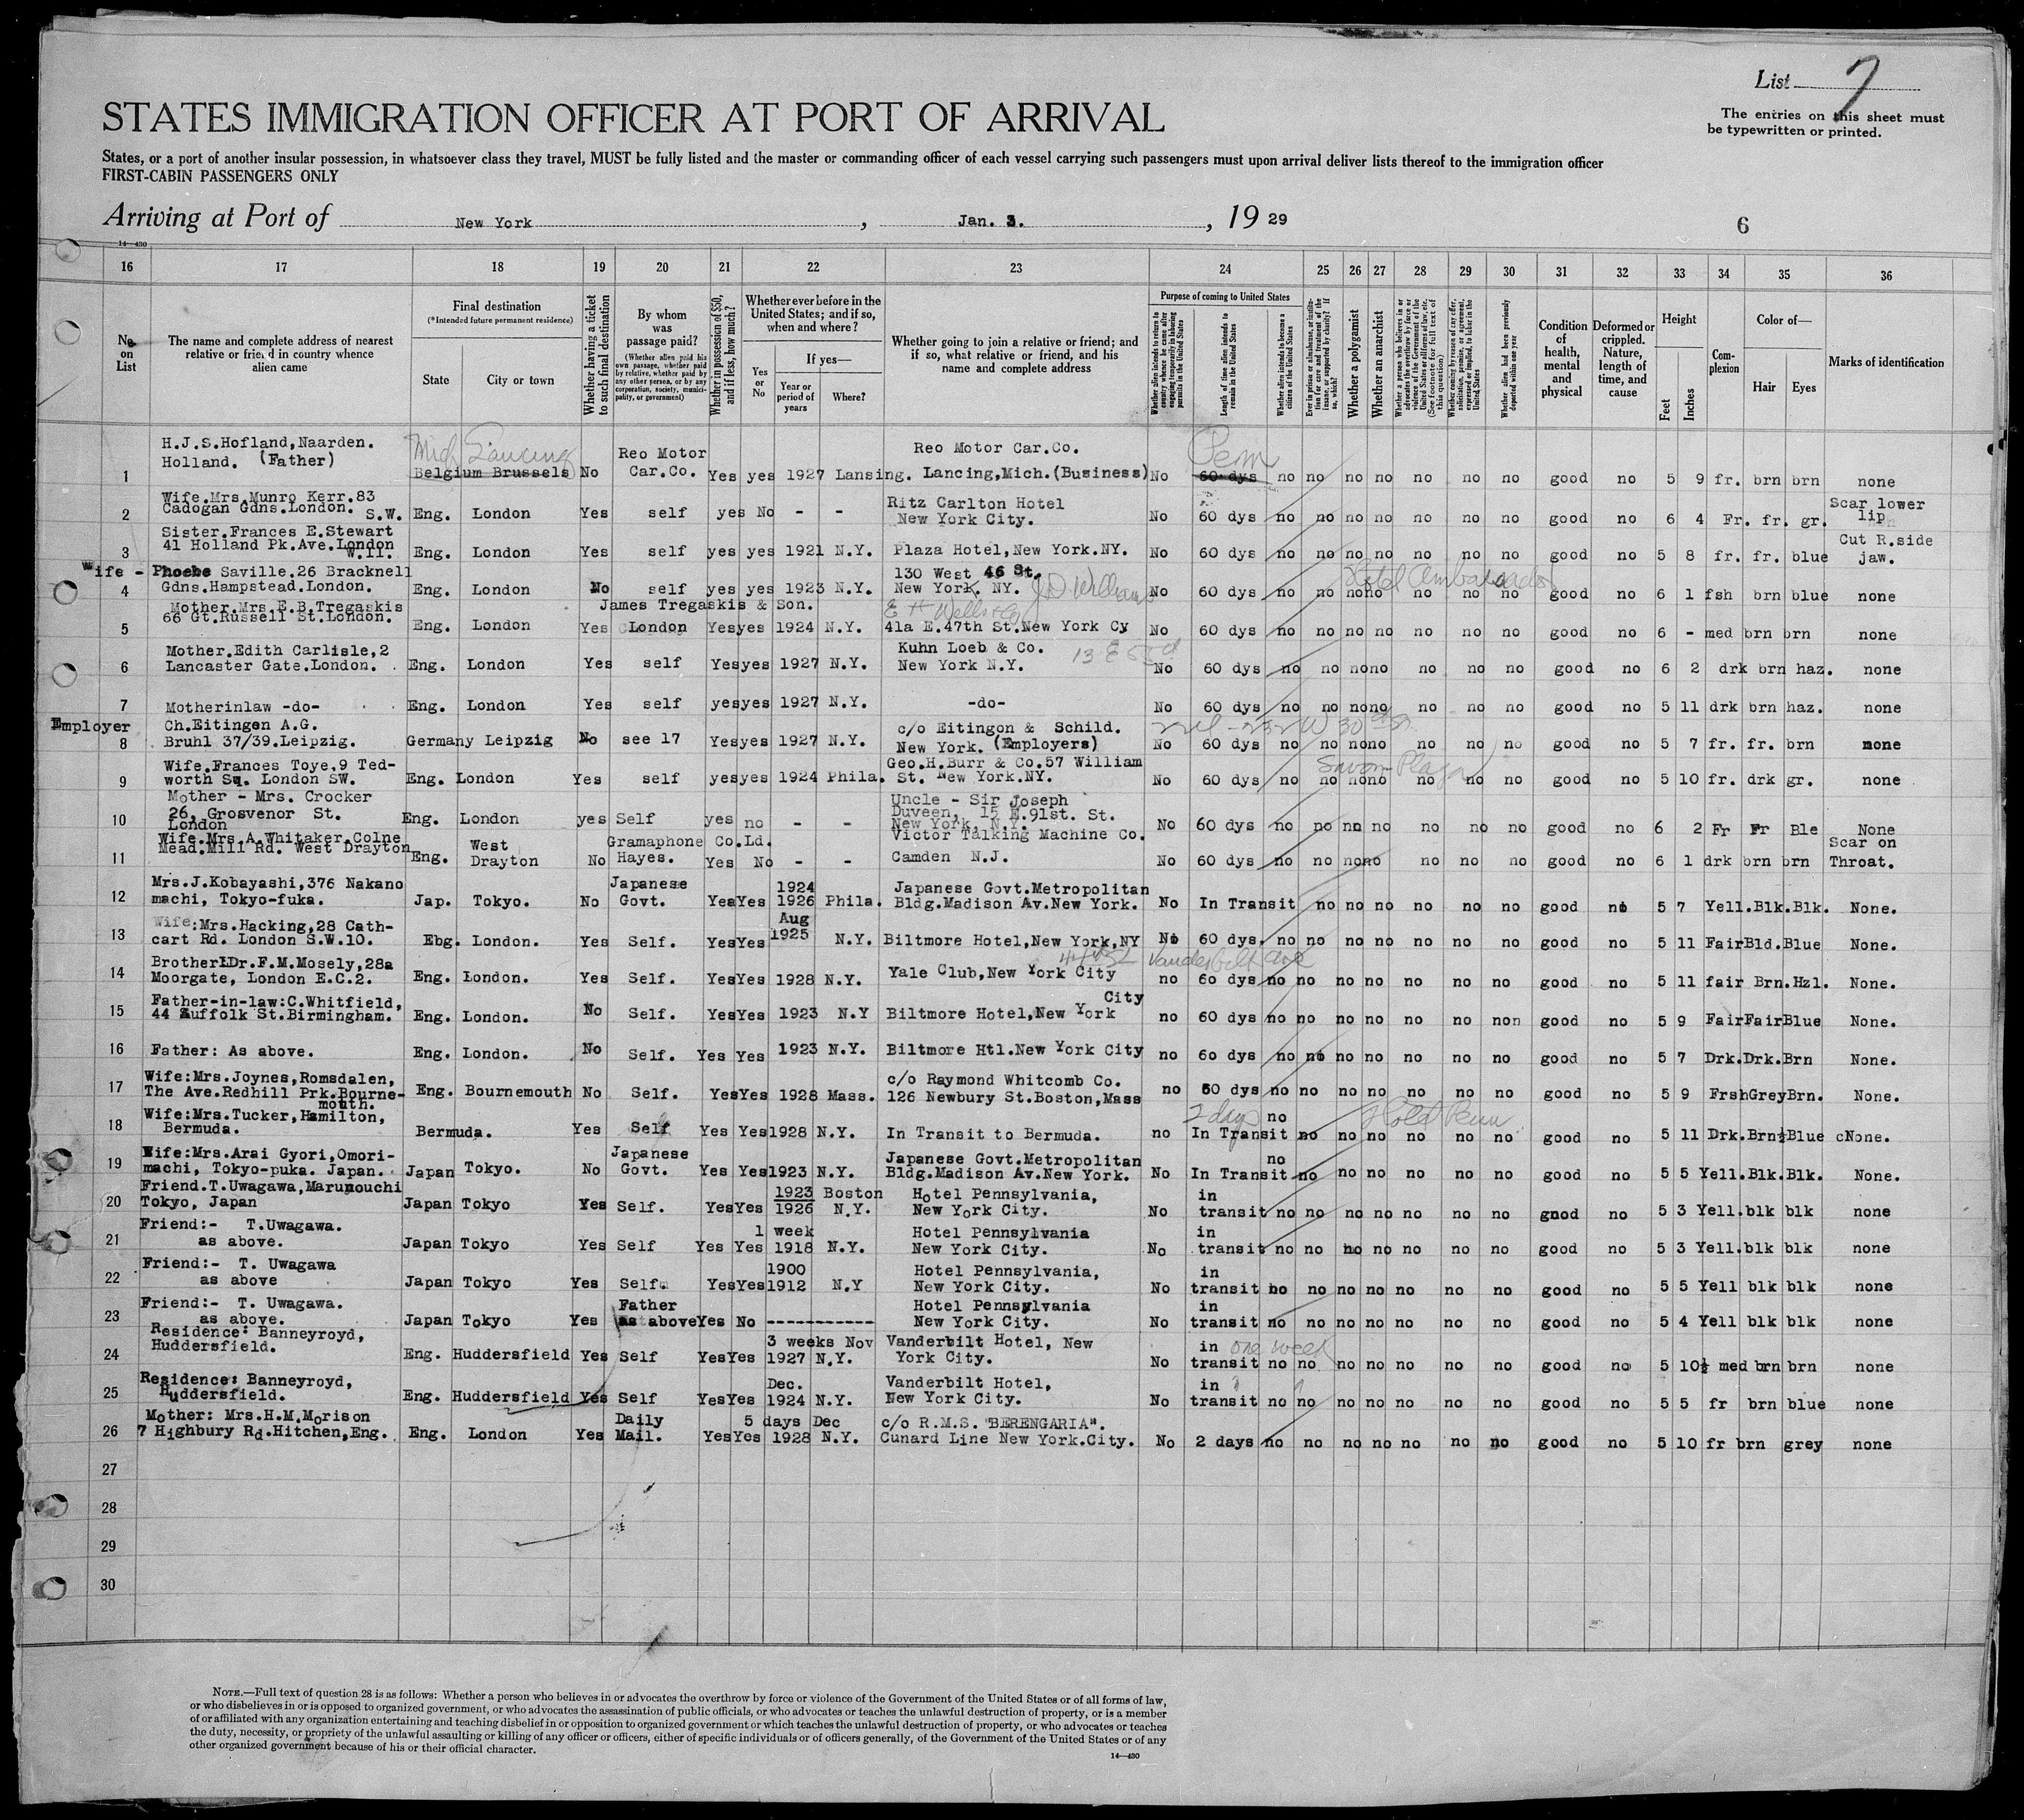 List 7
The entries on this sheet must
be typewritten or printed.
STATES IMMIGRATION OFFICER AT PORT OF ARRIVAL
States, or a port of another insular possession, in whatsoever class they travel, MUST be fully listed and the master or commanding officer of each vessel carrying such passengers must upon arrival deliver lists thereof to the immigration officer
FIRST-CABIN PASSENGERS ONLY
Arriving at Port of New York, Jan. 3., 19 29
6
14—430
16 17 18 19 20 21 22 23 24 25 26 27 28 29 30 31 32 33 34 35 36
No. on List
The name and complete address of nearest relative or friend in country whence alien came
Final destination
(*Intended future permanent residence)
State
City or town
Whether having a ticket to such final destination
By whom was passage paid?
(Whether alien paid his own passage, whether paid by relative, whether paid by any other person, or by any corporation, society, municipality, or government)
Whether in possession of $50, and if less, how much?
Whether ever before in the United States; and if so, when and where?
Yes or No
If yes—
Year or period of years
Where?
Whether going to join a relative or friend; and if so, what relative or friend, and his name and complete address
Purpose of coming to United States
Whether alien intends to return to country whence he came after engaging temporarily in laboring pursuits in the United States
Length of time alien intends to remain in the United States
Whether alien intends to become a citizen of the United States
Ever in prison or almshouse, or institution for care and treatment of the insane, or supported by charity? If so, which?
Whether a polygamist
Whether an anarchist
Whether a person who believes in or advocates the overthrow by force or violence of the Government of the United States or all forms of law, etc. (See footnote for full text of this question)
Whether coming by reason of any offer, solicitation, promise, or agreement, expressed or implied, to labor in the United States
Whether alien had been previously deported within one year
Condition of health, mental and physical
Deformed or crippled. Nature, length of time, and cause
Height
Feet
Inches
Complexion
Color of—
Hair
Eyes
Marks of identification
H.J.S.Hofland,Naarden. Mich Lancing Reo Motor Reo Motor Car.Co. Perm
1 Holland. (Father) Belgium Brussels No Car.Co. Yes yes 1927 Lansing. Lancing,Mich.(Business) No 60 dys no no no no no no no good no 5 9 fr. brn brn none
Wife.Mrs.Munro Kerr.83 Ritz Carlton Hotel Scar lower
2 Cadogan Gdns.London. S.W. Eng. London Yes self yes No - - New York City. No 60 dys no no no no no no no good no 6 4 Fr. fr. gr. lip
Sister.Frances E.Stewart Cut R.side
3 41 Holland Pk.Ave.London W.11. Eng. London Yes self yes yes 1921 N.Y. Plaza Hotel,New York.NY. No 60 dys no no no no no no no good no 5 8 fr. fr. blue jaw.
Wife - Phoebe Saville.26 Bracknell 130 West 46 St. Hotel Ambassador
4 Gdns.Hampstead.London. Eng. London No self yes yes 1923 N.Y. New York. NY. J.D.Williams No 60 dys no no no no no no no good no 6 1 fsh brn blue none
Mother.Mrs.E.B.Tregaskis James Tregaskis & Son. E H Wells & Co
5 66 Gt.Russell St.London. Eng. London Yes London Yes yes 1924 N.Y. 41a E.47th St.New York Cy No 60 dys no no no no no no no good no 6 - med brn brn none
Mother.Edith Carlisle,2 Kuhn Loeb & Co. 13 E 55d
6 Lancaster Gate.London. Eng. London Yes self Yes yes 1927 N.Y. New York N.Y. No 60 dys no no no no no no no good no 6 2 drk brn haz. none
7 Motherinlaw -do- Eng. London Yes self yes yes 1927 N.Y. -do- No 60 dys no no no no no no no good no 5 11 drk brn haz. none
Employer Ch.Eitingen A.G. c/o Eitingon & Schild. W 30th St.
8 Bruhl 37/39.Leipzig. Germany Leipzig No see 17 Yes yes 1927 N.Y. New York. (Employers) No 60 dys no no no no no no no good no 5 7 fr. fr. brn none
Wife.Frances Toye,9 Ted- Geo.H.Burr & Co.57 William Savoy-Plaza
9 worth Sq. London SW. Eng. London Yes self yes yes 1924 Phila. St. New York.NY. No 60 dys no no no no no no no good no 5 10 fr. drk gr. none
Mother - Mrs. Crocker Uncle - Sir Joseph
26, Grosvenor St. Duveen, 15 E.91st. St.
10 London Eng. London yes Self yes no - - New York, N.Y. No 60 dys no no no no no no no good no 6 2 Fr Fr Ble None
Wife.Mrs.A.Whitaker.Colne West Gramaphone Co.Ld. Victor Talking Machine Co. Scar on
11 Mead.Mill Rd. West Drayton Eng. Drayton No Hayes. Yes No - - Camden N.J. No 60 dys no no no no no no no good no 6 1 drk brn brn Throat.
Mrs.J.Kobayashi,376 Nakano Japanese 1924 Japanese Govt.Metropolitan
12 machi, Tokyo-fuka. Jap. Tokyo. No Govt. Yes Yes 1926 Phila. Bldg.Madison Av.New York. No In Transit no no no no no no good no 5 7 Yell.Blk.Blk. None.
Wife:Mrs.Hacking,28 Cath- Aug
13 cart Rd. London S.W.10. Ebg. London. Yes Self. Yes Yes 1925 N.Y. Biltmore Hotel,New York,NY No 60 dys. no no no no no no no good no 5 11 Fair Bld.Blue None.
Brother:Dr.F.M.Mosely,28a 44th St Vanderbilt Ave
14 Moorgate, London E.C.2. Eng. London. Yes Self. Yes Yes 1928 N.Y. Yale Club,New York City no 60 dys no no no no no no no good no 5 11 fair Brn.Hzl. None.
Father-in-law:C.Whitfield, City
15 44 Suffolk St.Birmingham. Eng. London. No Self. Yes Yes 1923 N.Y Biltmore Hotel,New York no 60 dys no no no no no no non good no 5 9 Fair Fair Blue None.
16 Father: As above. Eng. London. No Self. Yes Yes 1923 N.Y. Biltmore Htl.New York City no 60 dys no no no no no no no good no 5 7 Drk.Drk.Brn None.
Wife:Mrs.Joynes,Romsdalen, c/o Raymond Whitcomb Co.
17 The Ave.Redhill Prk.Bourne- mouth. Eng. Bournemouth No Self. Yes Yes 1928 Mass. 126 Newbury St.Boston,Mass no 60 dys no no no no no no no good no 5 9 Frsh Grey Brn. None.
Wife:Mrs.Tucker,Hamilton, 2 days no Hotel Penn
18 Bermuda. Bermuda. Yes Self Yes Yes 1928 N.Y. In Transit to Bermuda. no In Transit no no no no no no good no 5 11 Drk.Brn.Blue cNone.
Wife:Mrs.Arai Gyori,Omori- Japanese Japanese Govt.Metropolitan no
19 machi, Tokyo-puka. Japan. Japan Tokyo. No Govt. Yes Yes 1923 N.Y. Bldg.Madison Av.New York. No In Transit no no no no no no good no 5 5 Yell.Blk.Blk. None.
Friend.T.Uwagawa,Marunouchi 1923 Boston Hotel Pennsylvania, in
20 Tokyo, Japan Japan Tokyo Yes Self. Yes Yes 1926 N.Y. New York City. No transit no no no no no no no good no 5 3 Yell.blk blk none
Friend:- T.Uwagawa. 1 week Hotel Pennsylvania in
21 as above. Japan Tokyo Yes Self Yes Yes 1918 N.Y. New York City. No transit no no no no no no no good no 5 3 Yell.blk blk none
Friend:- T. Uwagawa 1900 Hotel Pennsylvania, in
22 as above Japan Tokyo Yes Self Yes Yes 1912 N.Y New York City. No transit no no no no no no no good no 5 5 Yell blk blk none
Friend:- T. Uwagawa. Father Hotel Pennsylvania in
23 as above. Japan Tokyo Yes as above Yes No ----------- New York City. No transit no no no no no no no good no 5 4 Yell blk blk none
Residence: Banneyroyd, 3 weeks Nov Vanderbilt Hotel, New in one week
24 Huddersfield. Eng. Huddersfield Yes Self Yes Yes 1927 N.Y. York City. No transit no no no no no no no good no 5 10½ med brn brn none
Residence: Banneyroyd, Dec. Vanderbilt Hotel, in
25 Huddersfield. Eng. Huddersfield Yes Self Yes Yes 1924 N.Y. New York City. No transit no no no no no no no good no 5 5 fr brn blue none
Mother: Mrs.H.M.Morison Daily 5 days Dec c/o R.M.S. "BERENGARIA".
26 7 Highbury Rd.Hitchen,Eng. Eng. London Yes Mail. Yes Yes 1928 N.Y. Cunard Line New York.City. No 2 days no no no no no no no good no 5 10 fr brn grey none
27
28
29
30
NOTE.—Full text of question 28 is as follows: Whether a person who believes in or advocates the overthrow by force or violence of the Government of the United States or of all forms of law,
or who disbelieves in or is opposed to organized government, or who advocates the assassination of public officials, or who advocates or teaches the unlawful destruction of property, or is a member
of or affiliated with any organization entertaining and teaching disbelief in or opposition to organized government or which teaches the unlawful destruction of property, or who advocates or teaches
the duty, necessity, or propriety of the unlawful assaulting or killing of any officer or officers, either of specific individuals or of officers generally, of the Government of the United States or of any
other organized government because of his or their official character.
14—430